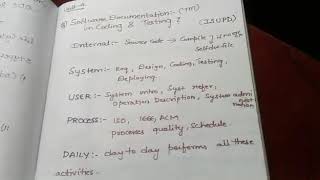 Unit-4
Software Documentation:- (4M)
in Coding & Testing? (ISUPD)
Internal:- Source code → Compile
System:- Req, Design, Coding, Testing,
Deploying.
USER:- System intro, Syst refer,
Operation Description, System admi
PROCESS:- ISO, IEEE, ACM
processes quality, Schedule.
DAILY:- day to day performs all these
activities.